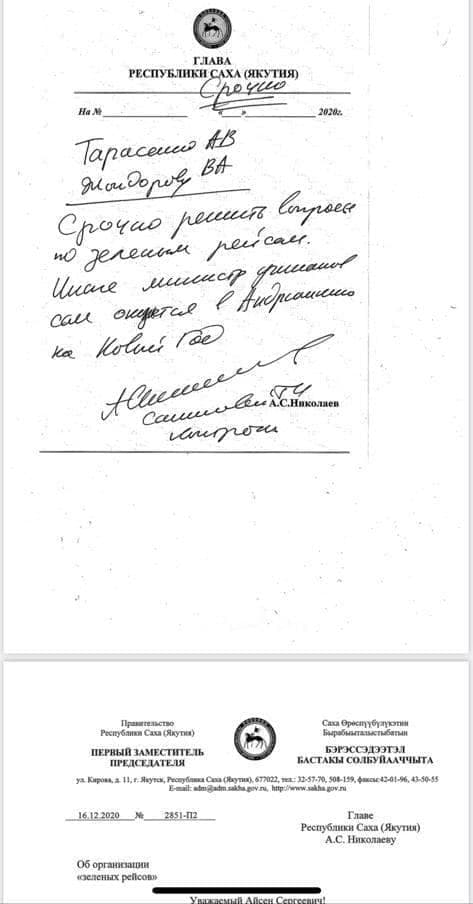 ГЛАВА
РЕСПУБЛИКИ САХА (ЯКУТИЯ)
Срочно
На № « » 2020г.
Тарасенко АВ
Жондорову ВА
Срочно решить вопросы
по зеленым рейсам.
Иначе министр финансов
сам окажется в Андрюшкино
на Новый Год
А.С.Николаев
контроль
Правительство
Республики Саха (Якутия)
ПЕРВЫЙ ЗАМЕСТИТЕЛЬ
ПРЕДСЕДАТЕЛЯ
Саха Өрөспүүбүлүкэтин
Бырабыыталыстыбатын
БЭРЭССЭДЭЭТЭЛ
БАСТАКЫ СОЛБУЙААЧЧЫТА
ул. Кирова, д. 11, г. Якутск, Республика Саха (Якутия), 677022, тел.: 32-57-70, 508-159, факсы:42-01-96, 43-50-55
E-mail: adm@adm.sakha.gov.ru, http://www.sakha.gov.ru
16.12.2020 № 2851-П2
Главе
Республики Саха (Якутия)
А.С. Николаеву
Об организации
«зеленых рейсов»
Уважаемый Айсен Сергеевич!